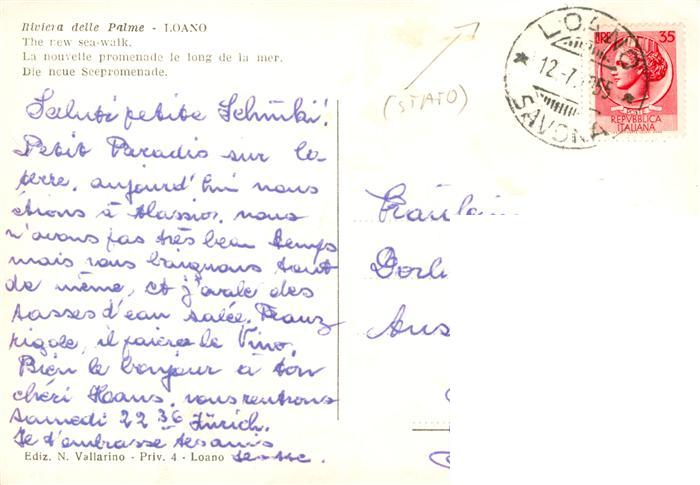 Riviera delle Palme - LOANO
The new sea-walk.
La nouvelle promenade le long de la mer.
Die neue Seepromenade.
(STATO)
LOANO
12-7
55
SAVONA
LIRE 35
POSTE
REPVBBLICA
ITALIANA
Saluti petite Schnuki!
Petit Paradis sur la
terre, aujourd'hui nous
étions à Alassio, nous
n'avons pas très beau temps
mais nous baignons tout
de même, et j'avale des
tasses d'eau salée. Franz
rigole, il paiera le Vino.
Bien le bonjour à ton
chéri Haans, nous rentrons
Samedi 22 36 Zürich.
Je t'embrasse
Fräulein
Ediz. N. Vallarino - Priv. 4 - Loano